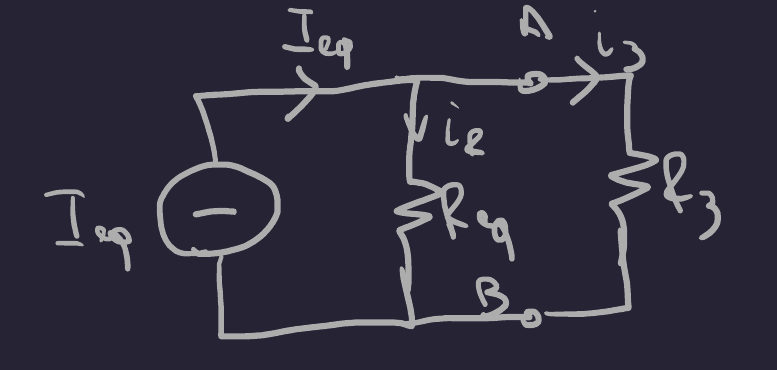 I_eq
A
i_3
i_R
I_eq
R_eq
R_3
B